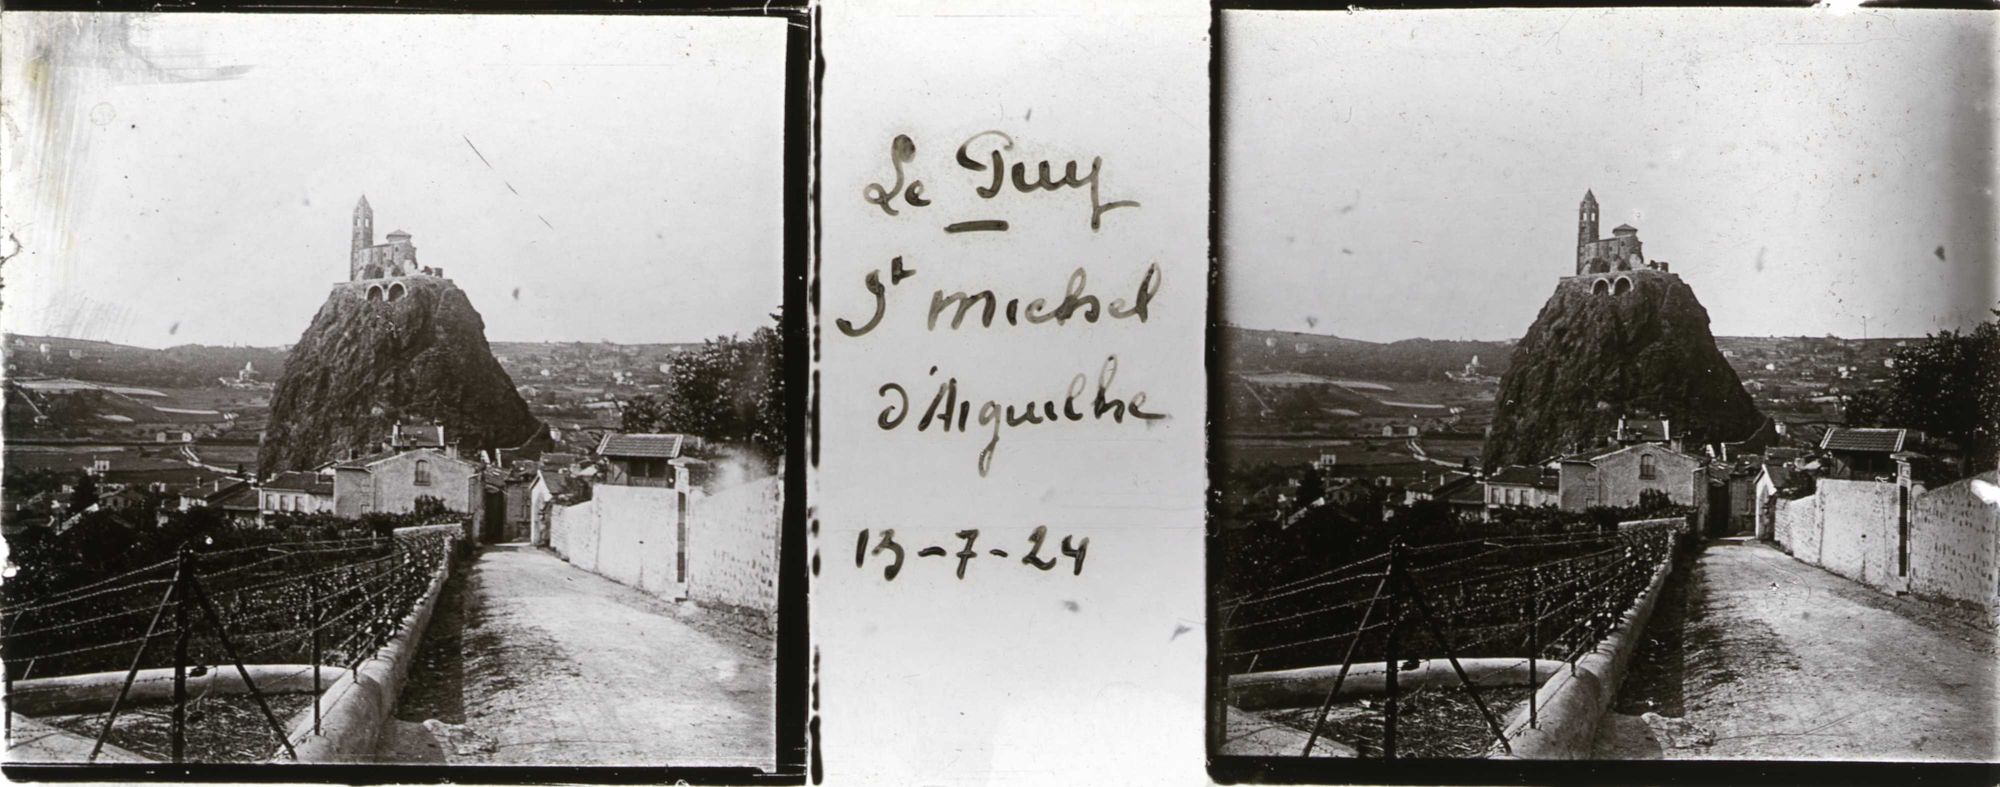 Le Puy
St Michel
d'Aiguilhe
13-7-24